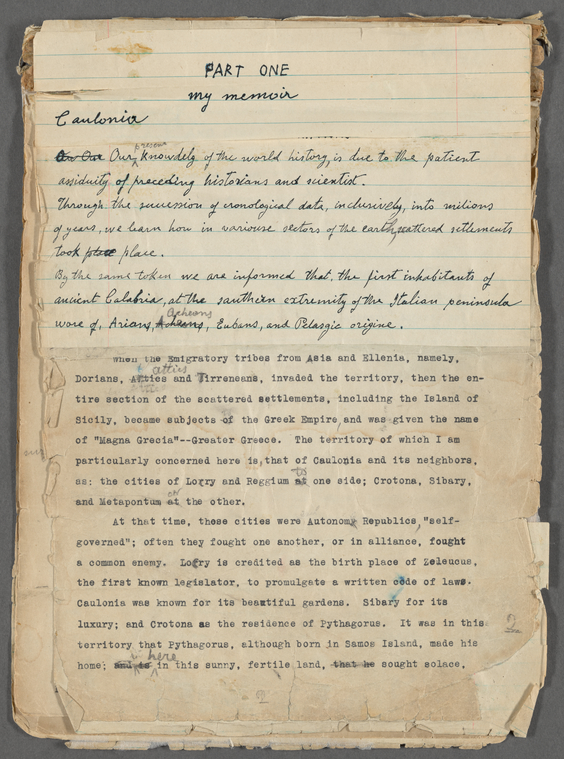 PART ONE
my memoir
Caulonia
present
Our knowdelg of the world history, is due to the patient
assiduity of preceding historians and scientist.
Through the sucession of cronological date, inclusively, into milions
of years, we learn how in variouse sectors of the earth, scattered settlements
took place place.
By the same token we are informed that, the first inhabitants of
antient Calabria, at the southern extremity of the Italian peninsula
Acheons
wore of, Arians, Acheans, Eubans, and Pelasgic origine.
When the Emigratory tribes from Asia and Ellenia, namely,
attics
Dorians, Attics and Tirreneans, invaded the territory, then the en-
tire section of the scattered settlements, including the Island of
Sicily, became subjects of the Greek Empire and was given the name
of "Magna Grecia"--Greater Greece. The territory of which I am
particularly concerned here is, that of Caulonia and its neighbors,
to
as: the cities of Locry and Reggium at one side; Crotona, Sibary,
on
and Metapontum at the other.
At that time, these cities were Autonomy Republics, "self-
governed"; often they fought one another, or in alliance, fought
a common enemy. Locry is credited as the birth place of Zeleucus,
the first known legislator, to promulgate a written code of laws.
Caulonia was known for its beautiful gardens. Sibary for its
luxury; and Crotona as the residence of Pythagorus. It was in this
2
territory that Pythagorus, although born in Samos Island, made his
here
home; and is in this sunny, fertile land, that he sought solace,
2